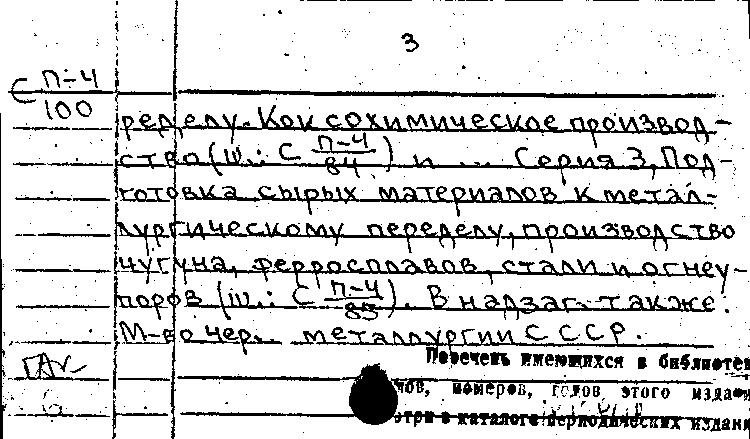 3
С П-4
100
ределу. Коксохимическое производ-
ство (ш.: С П-4/84) и ... Серия 3, Под-
готовка сырых материалов к метал-
лургическому переделу, производство
чугуна, ферросплавов, стали и огнеу-
поров (ш.: С П-4/85). В надзаг. также:
М-во чер. металлургии СССР.
Перечень имеющихся в библиотек
номеров, голов этого издани
в каталоге периодических издани